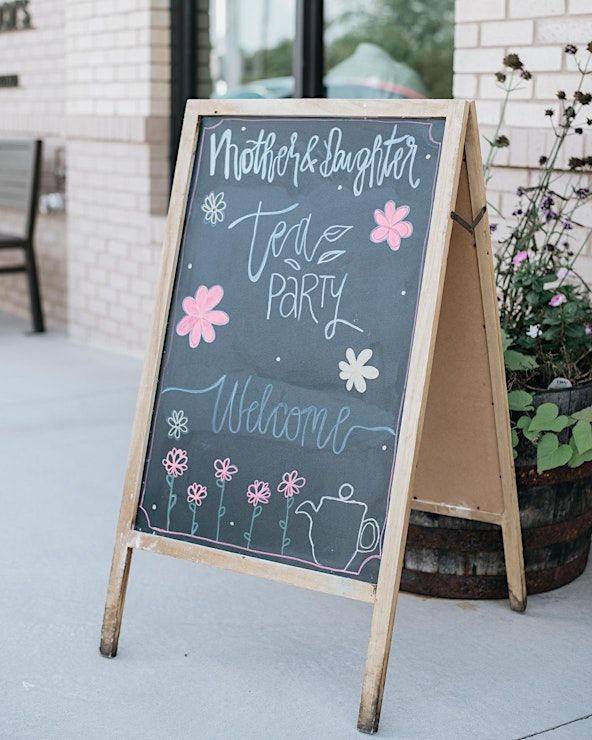 Mother & Daughter
tea
PARTY
Welcome